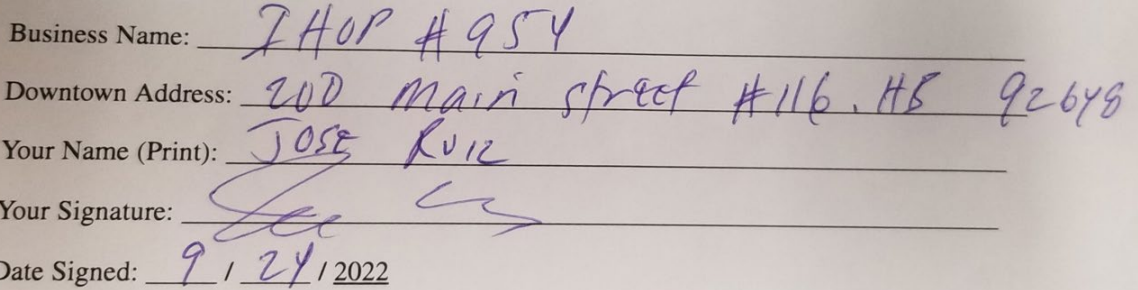 Business Name: IHOP #954
Downtown Address: 200 Main street #116. HB 92648
Your Name (Print): JOSE RUIZ
Your Signature:
Date Signed: 9 / 24 / 2022